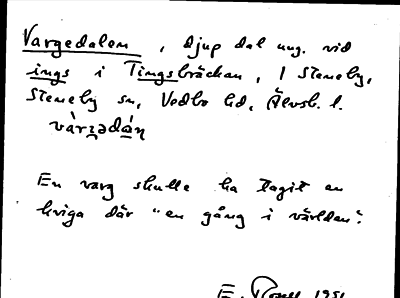 Vargedalen, djup dal ung. vid
ings i Tingsbräckan, 1 Steneby,
Steneby sn, Vedbo hd, Älvsb. l.
En varg skulle ha tagit en
kviga där "en gång i världen".
E. 1951